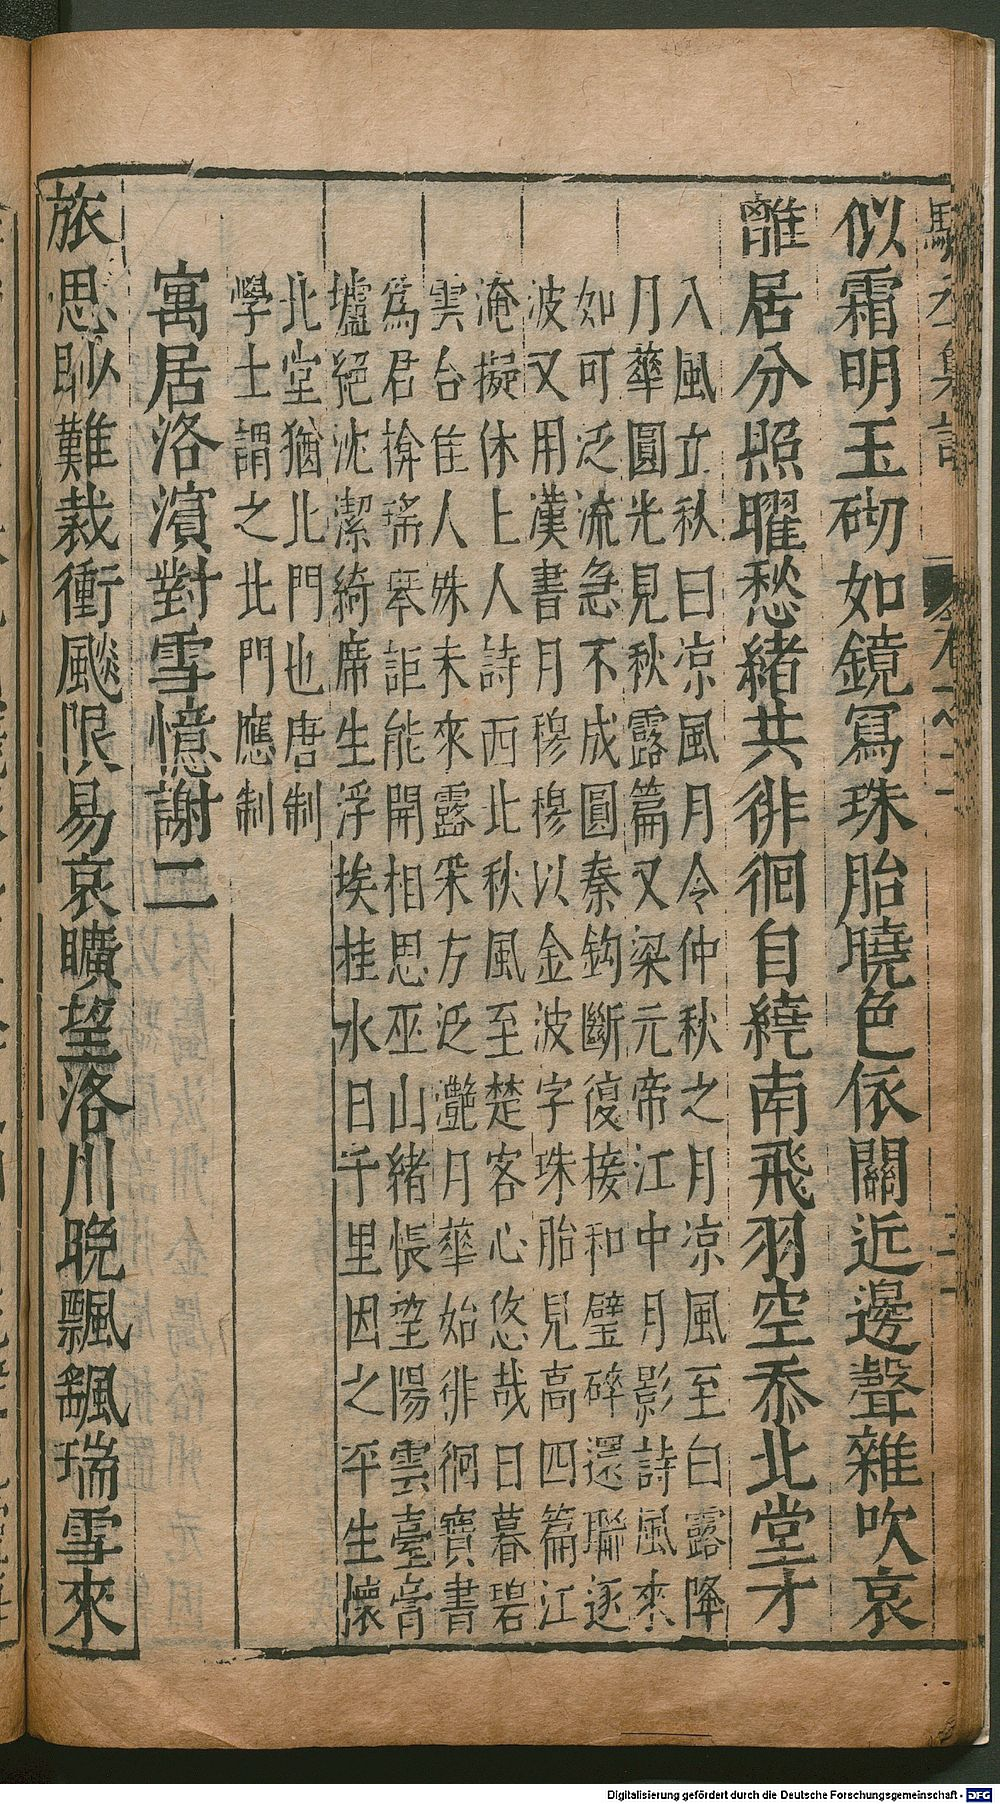 似霜明玉砌如鏡冩珠胎曉色依關近邊聲雜吹哀
離居分照曜愁緒共徘徊自繞南飛羽空忝北堂才
入風立秋曰凉風月令仲秋之月凉風至白露降
月華圓光見秋露篇又梁元帝江中月影詩風來
如可泛流急不成圓秦鈎斷復接和璧碎還聯逐
波又用漢書月穆穆以金波字珠胎見高四篇江
淹擬休上人詩西北秋風至楚客心悠哉日暮碧
雲合佳人殊未來露采方泛灧月華始徘徊寶書
爲君揜瑤琴詎能開相思巫山緒悵望陽雲臺膏
壚絕沈潔綺席生浮埃桂水日千里因之平生懷
北堂猶北門也唐制
學士謂之北門應制
寓居洛濱對雪憶謝二
旅思眇難裁衝飈限易哀曠望洛川晚飄颻瑞雪來
Digitalisierung gefördert durch die Deutsche Forschungsgemeinschaft - DFG